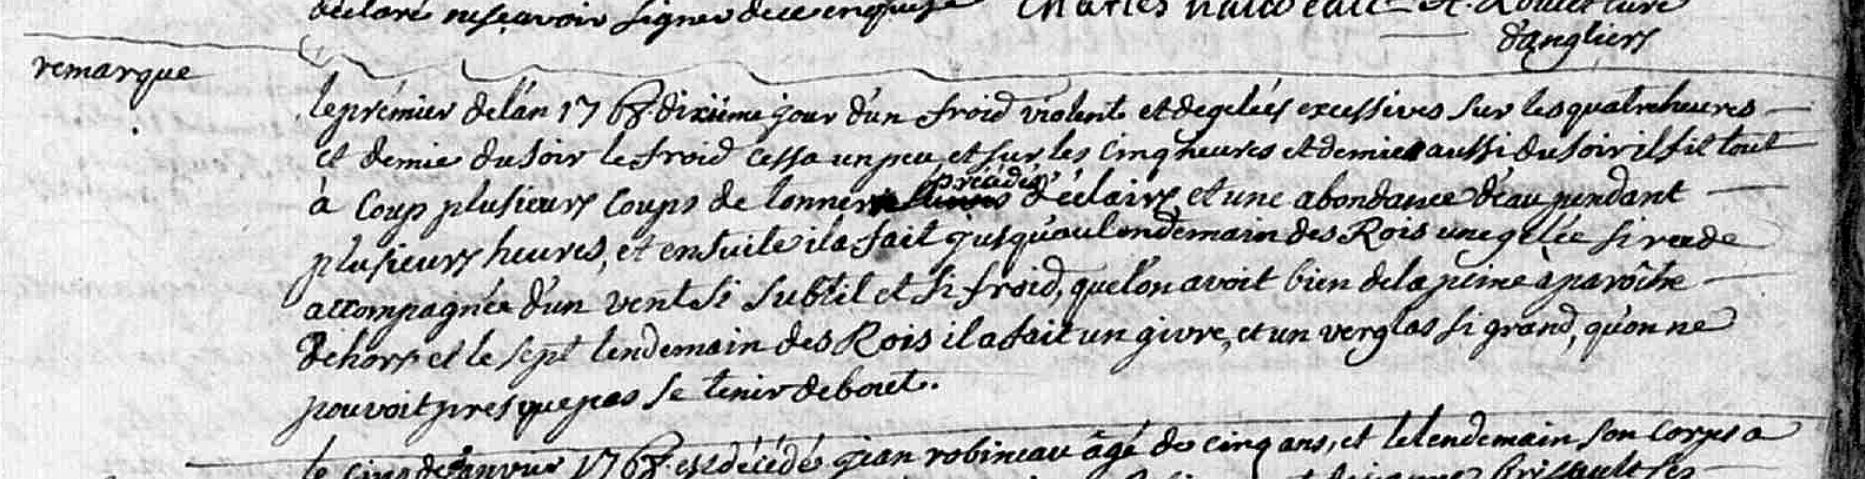 déclaré ne sçavoir signer de ce enquise Charles
d'angliers
remarque
le prémier de l'an 1768. dixiéme jour d'un froid violent et de gelées excessives sur les quatre heures
et demie du soir le froid cessa un peu, et sur les cinq heures et demie aussi du soir il fit tout
à coup plusieurs coups de tonnerre précédés d'éclairs, et une abondance d'eau pendant
plusieurs heures, et ensuite il a fait jusqu'au lendemain des Rois une gelée si rude
accompagnée d'un vent si subtil et si froid, que l'on avoit bien de la peine à parôitre
dehors et le sept lendemain des Rois il a fait un givre, et un verglas si grand, qu'on ne
pouvoit presque pas se tenir debout.
le cinq de janvier 1768. est décédé jean robineau âgé de cinq ans, et le lendemain son corps a